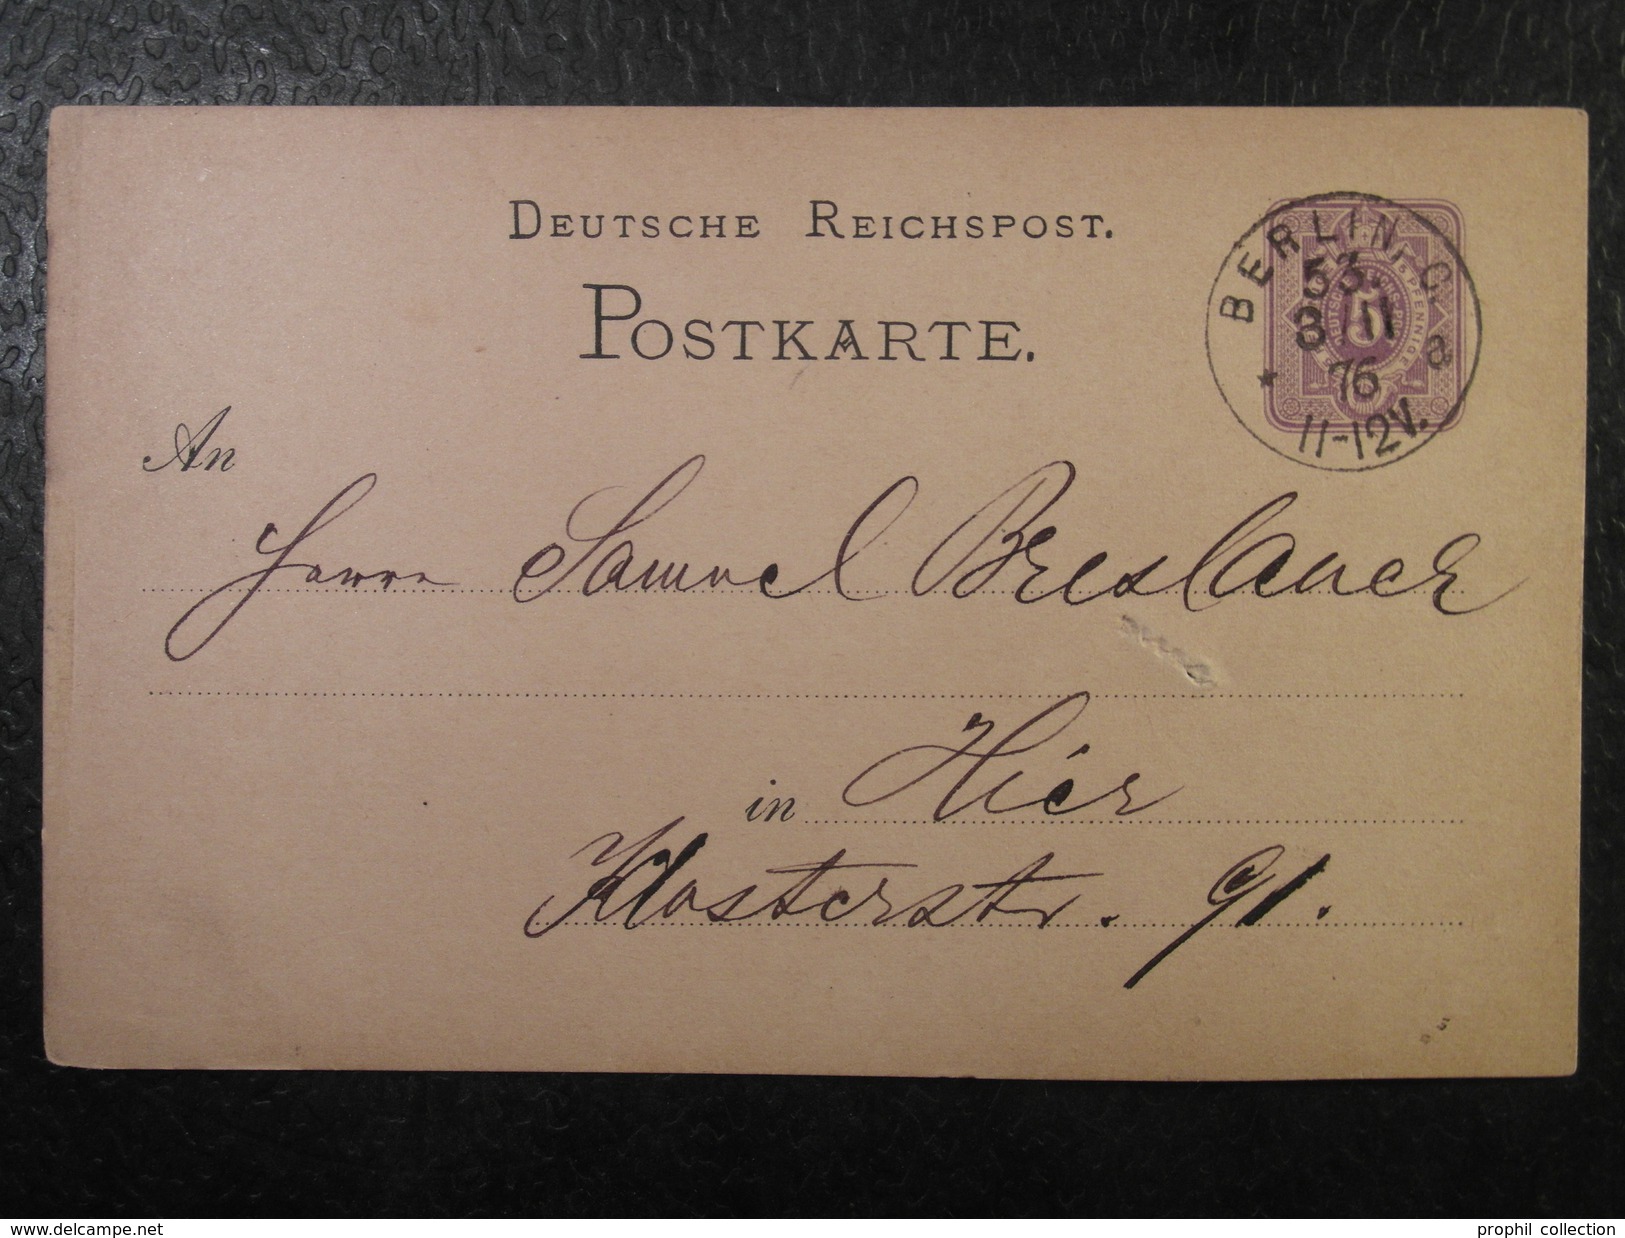 DEUTSCHE REICHSPOST.
POSTKARTE.
BERLIN, C.
53.
8 11
76
* a
11-12V.
5 PFENNIGE
5
An
Herrn Samuel Breslauer
in Hier
Klosterstr. 91.
delcampe.net
prophil collection